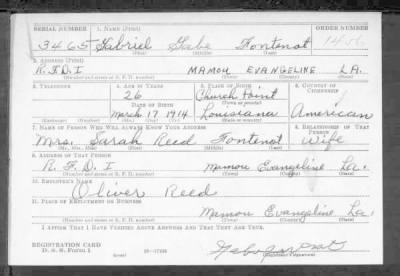 SERIAL NUMBER 1. NAME (Print) ORDER NUMBER
3465 Gabriel Gabe Fontenot
(First) (Middle) (Last)
2. ADDRESS (Print)
R.F.D.I MAMOU EVANGELINE LA.
(Number and street or R. F. D. number) (Town) (County) (State)
3. TELEPHONE 4. AGE IN YEARS 5. PLACE OF BIRTH 6. COUNTRY OF CITIZENSHIP
26 Church Point
DATE OF BIRTH (Town or county)
March 17 1914 Louisiana American
(Mo.) (Day) (Yr.) (State or country)
7. NAME OF PERSON WHO WILL ALWAYS KNOW YOUR ADDRESS 8. RELATIONSHIP OF THAT PERSON
Mrs. Sarah Reed Fontenot Wife
(Mr., Mrs., Miss) (First) (Middle) (Last)
9. ADDRESS OF THAT PERSON
R.F.D.I Mamou Evangeline La.
(Number and street or R. F. D. number) (Town) (County) (State)
10. EMPLOYER'S NAME
Oliver Reed
11. PLACE OF EMPLOYMENT OR BUSINESS
Mamou Evangeline La.
(Number and street or R. F. D. number) (Town) (County) (State)
I AFFIRM THAT I HAVE VERIFIED ABOVE ANSWERS AND THAT THEY ARE TRUE.
REGISTRATION CARD
D. S. S. Form 1 (Registrant's signature)